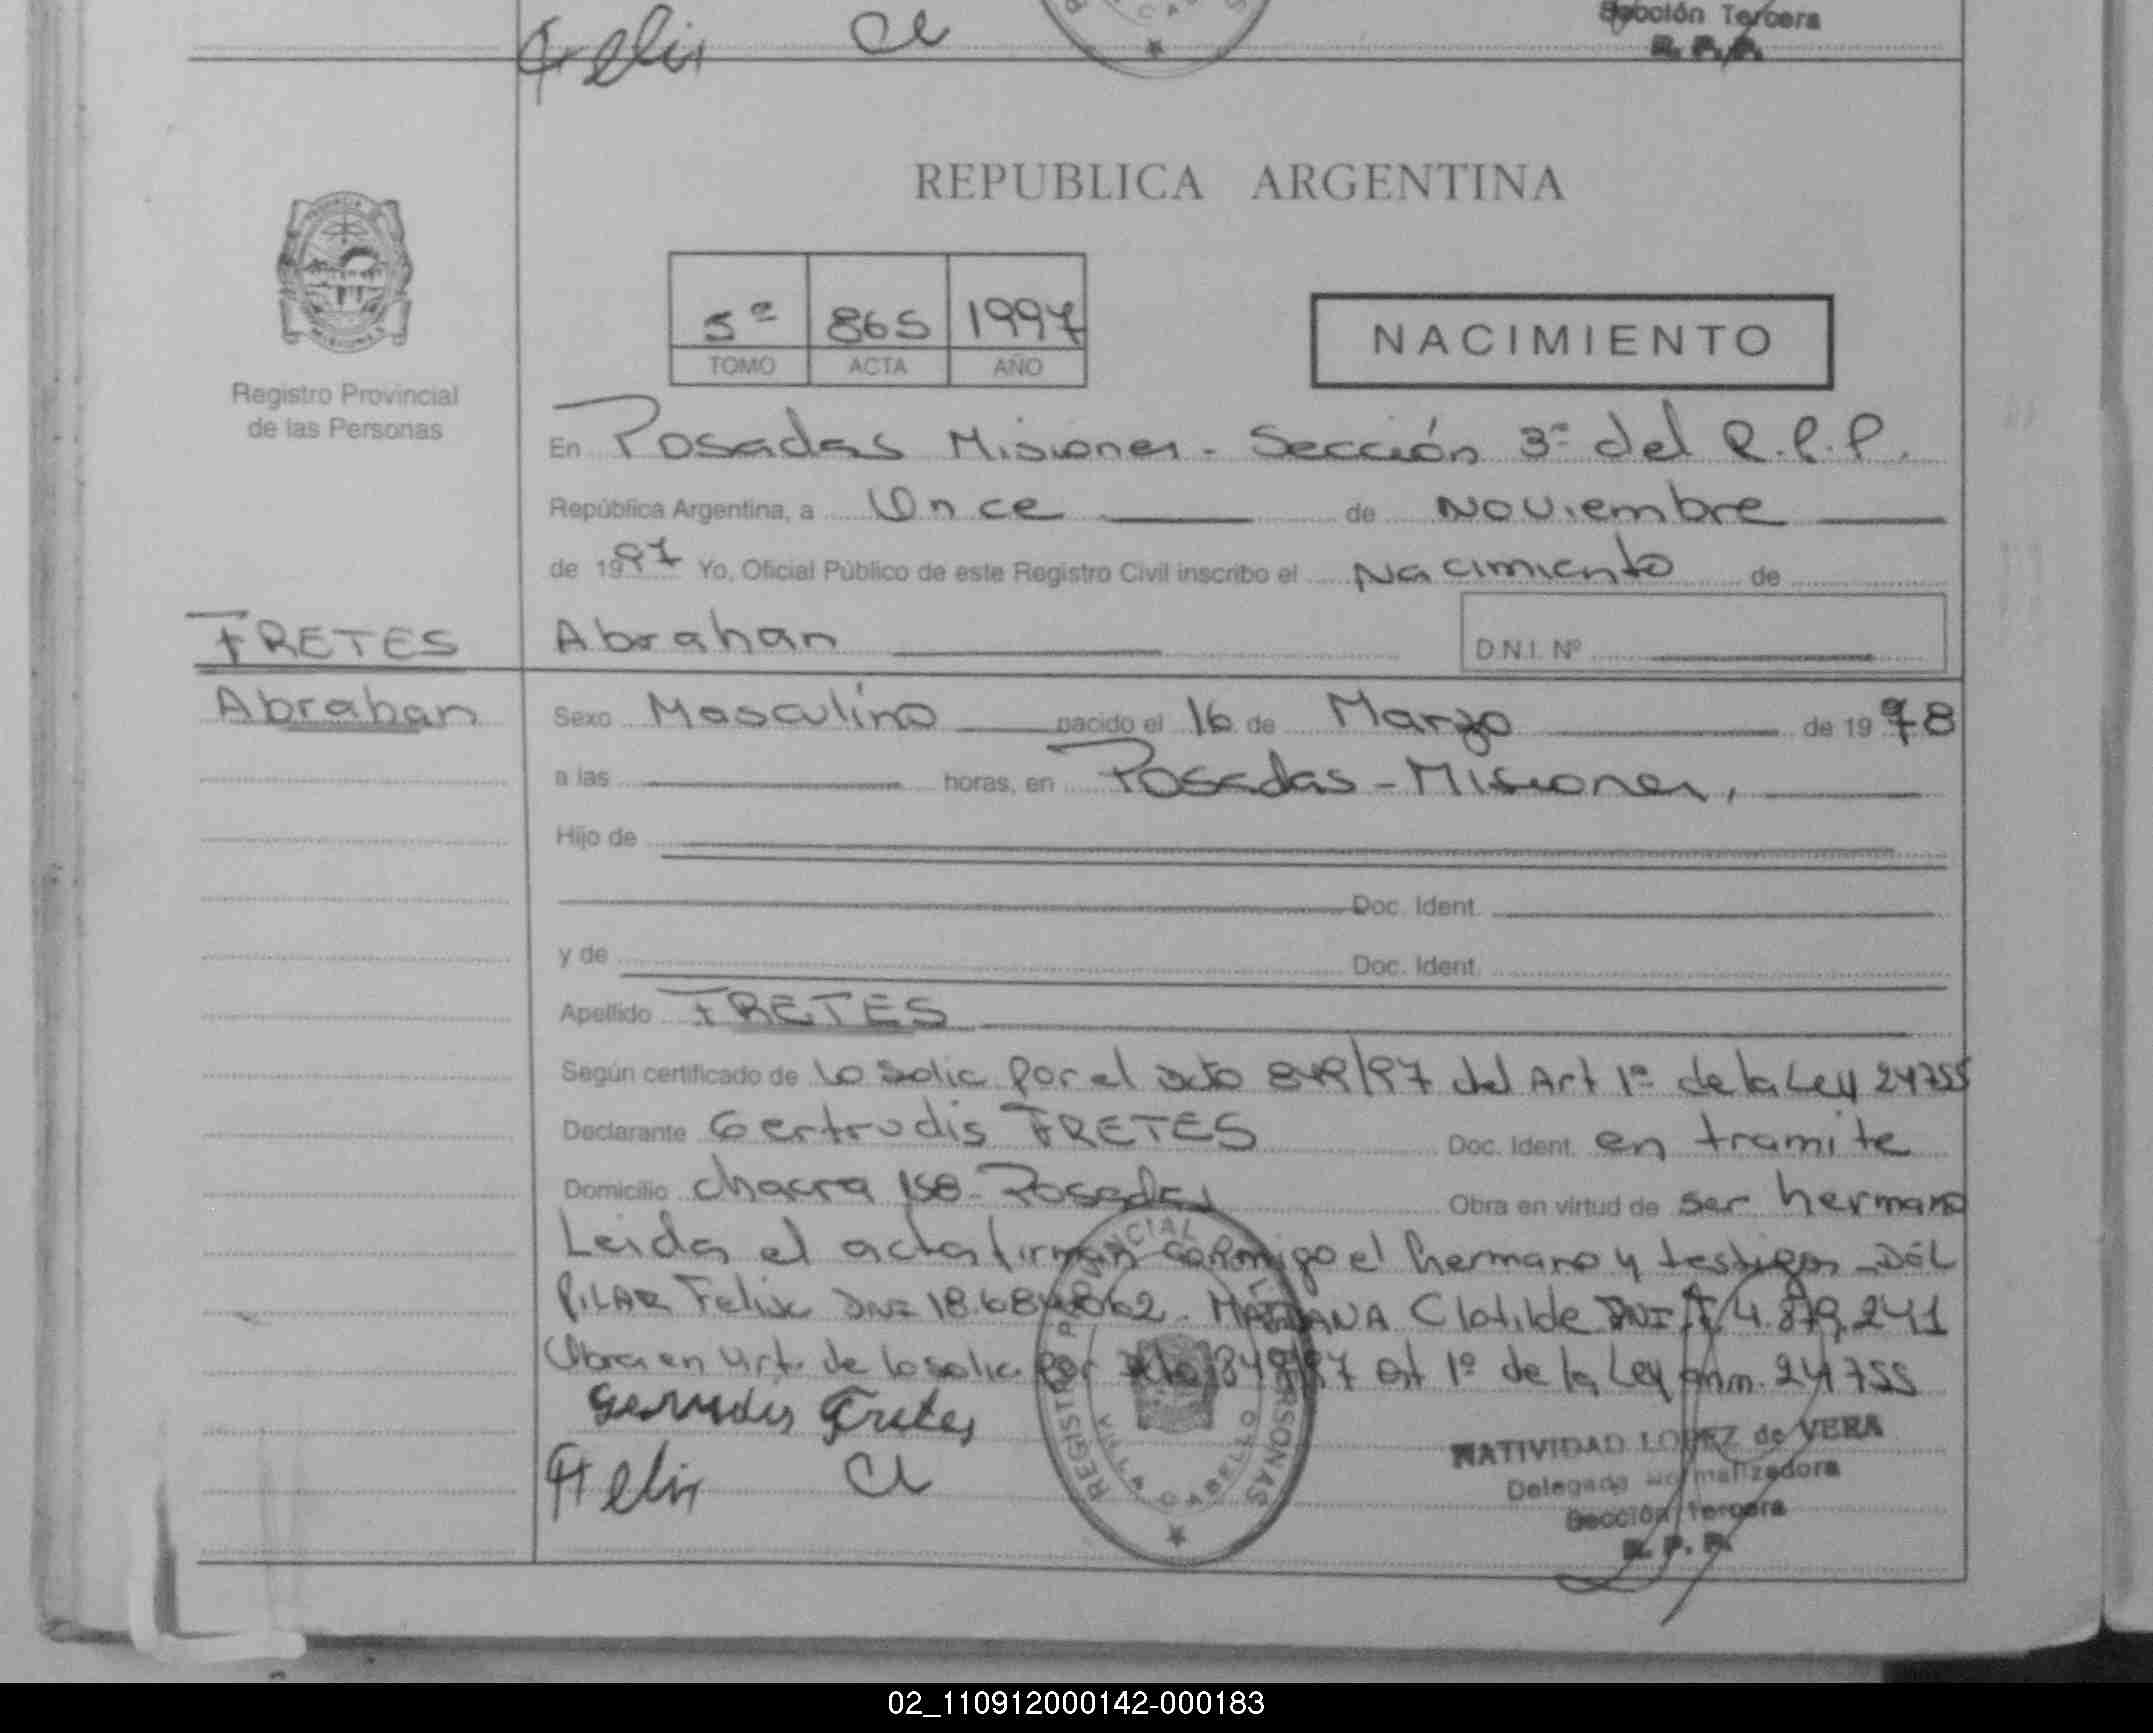 Felix Cl
Sección Tercera
R. P. P.
REPUBLICA ARGENTINA
5ª 865 1997
TOMO ACTA AÑO
NACIMIENTO
Registro Provincial
de las Personas
En Posadas Misiones - Sección 3ª del R.P.P.
República Argentina, a Once de Noviembre
de 1997 Yo, Oficial Público de este Registro Civil inscribo el Nacimiento de
FRETES Abrahan D.N.I. Nº
Abrahan
Sexo Masculino nacido el 16 de Marzo de 1978
a las horas, en Posadas - Misiones,
Hijo de
Doc. Ident.
y de Doc. Ident.
Apellido FRETES
Según certificado de lo solic por el dcto 849/97 del Art 1º de la Ley 24755
Declarante Gertrudis FRETES Doc. Ident. en tramite
Domicilio chacra 158 - Posadas Obra en virtud de ser hermano
Leida el acta firman conmigo el hermano y testigos - DEL
PILAR Felix DNI 18.684.862 - Clotilde DNI 4.879.241
Obra en virt. de lo solic. por dcto 849/97 art 1º de la Ley 24755
Gerrudis Fretes
Felix Cl
REGISTRO PROVINCIAL PERSONAS
VILLA CABELLO
NATIVIDAD LOPEZ de VERA
Delegada Normalizadora
Sección Tercera
R. P. P.
02_110912000142-000183